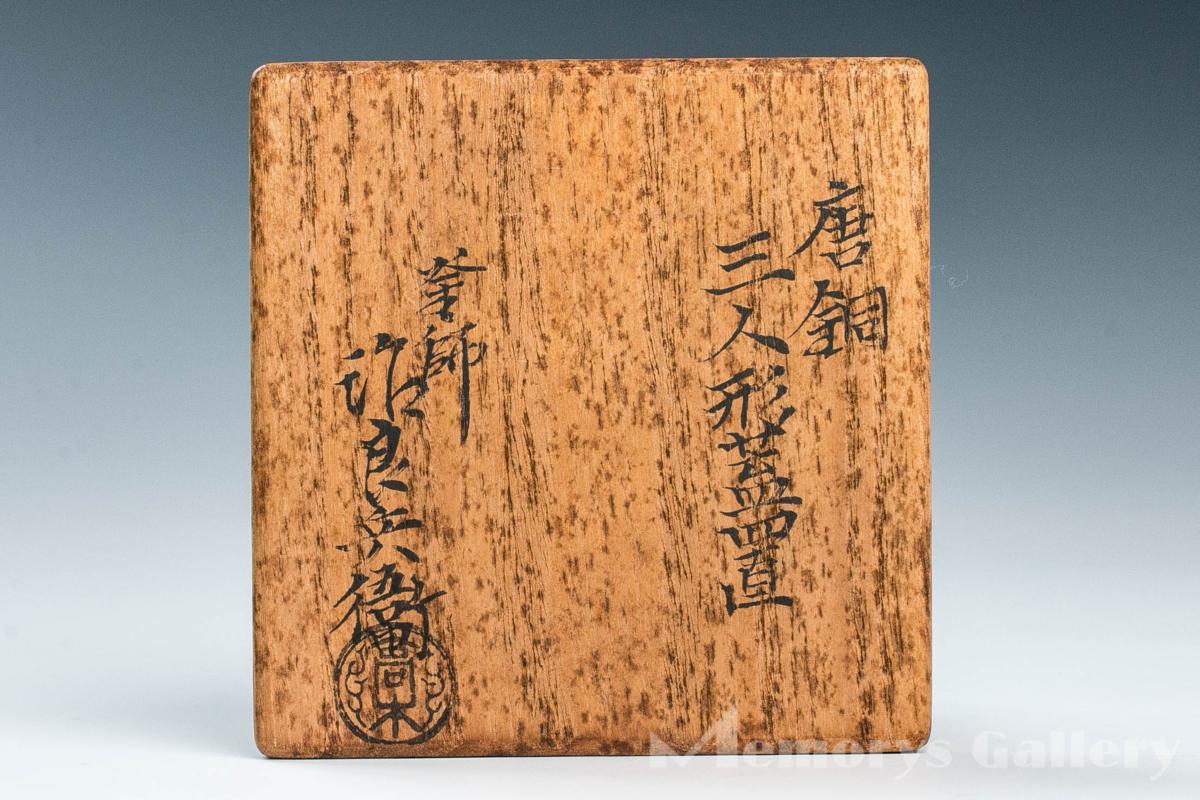 唐銅
三人形蓋置
釜師
治良兵衛
Memorys Gallery